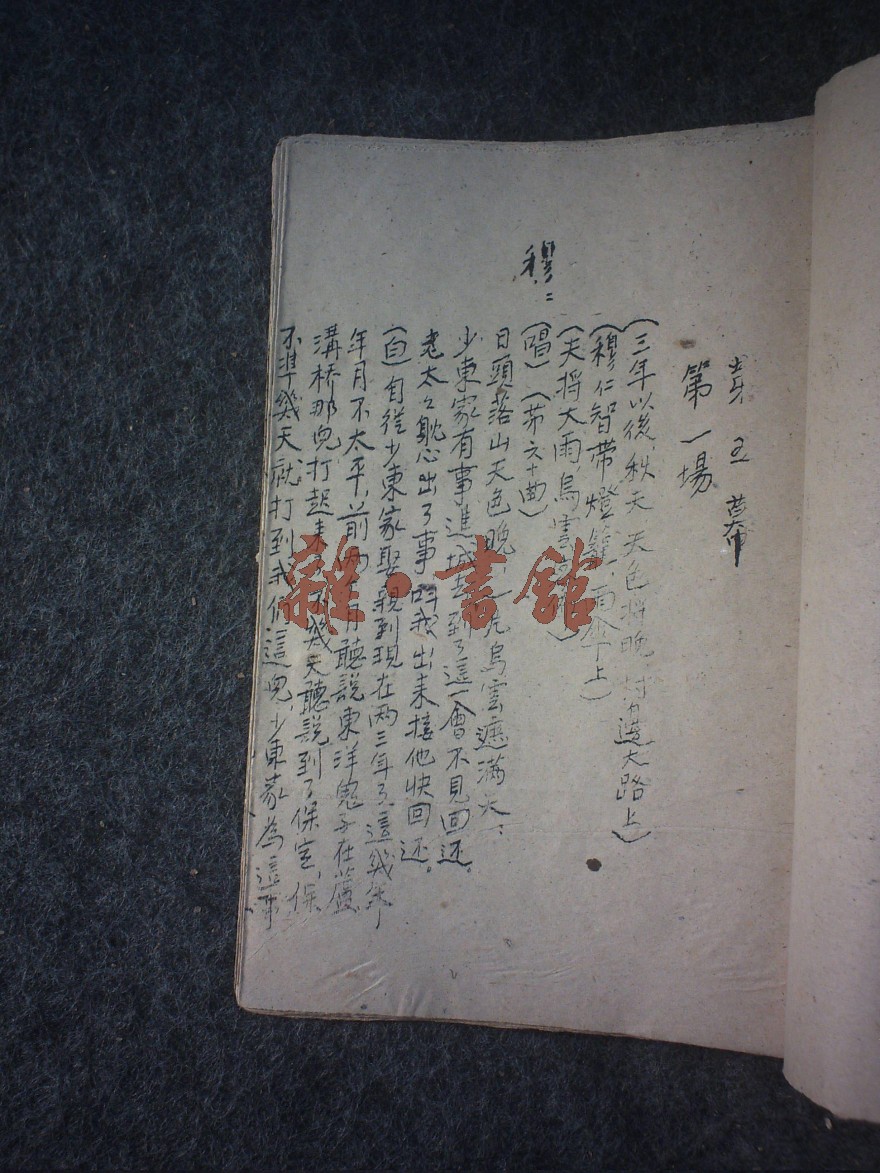 第五幕
第一場
(三年以後,秋天,天色將晚,村邊大路上)
(穆仁智帶燈籠、雨傘上)
(天將大雨,烏雲
穆:
(唱)(第六十曲)
日頭落山天色晚,一片烏雲遮滿天、
少東家有事進城去,到了這一會不見回还。
老太々耽心出了事 叫我出来接他快回还。
(白)自從少東家娶親到現在两三年了,這幾年
年月不太平,前两个月聽說東洋鬼子在蘆
溝桥那兒打起来了,不幾天聽說到了保定,保
不準幾天就打到我们這兒,少東家為這事
雜·書館